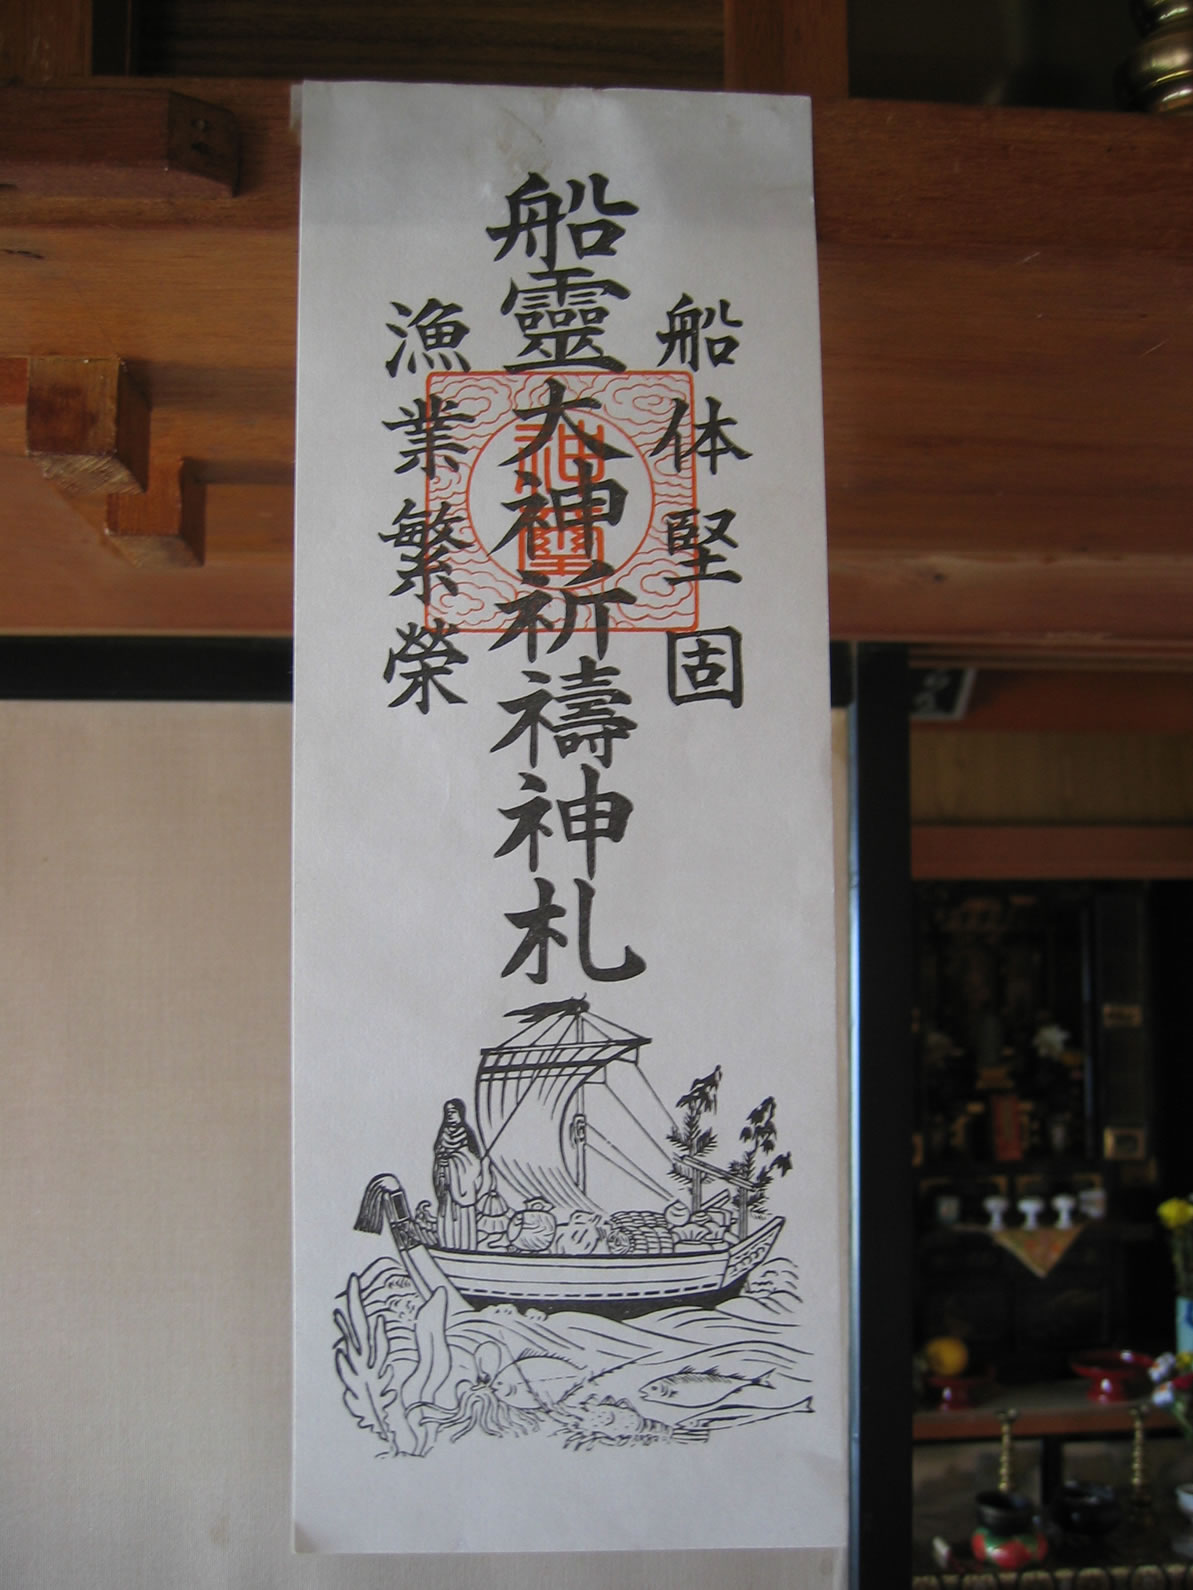 船体堅固
船靈大神祈禱神札
漁業繁榮
神璽